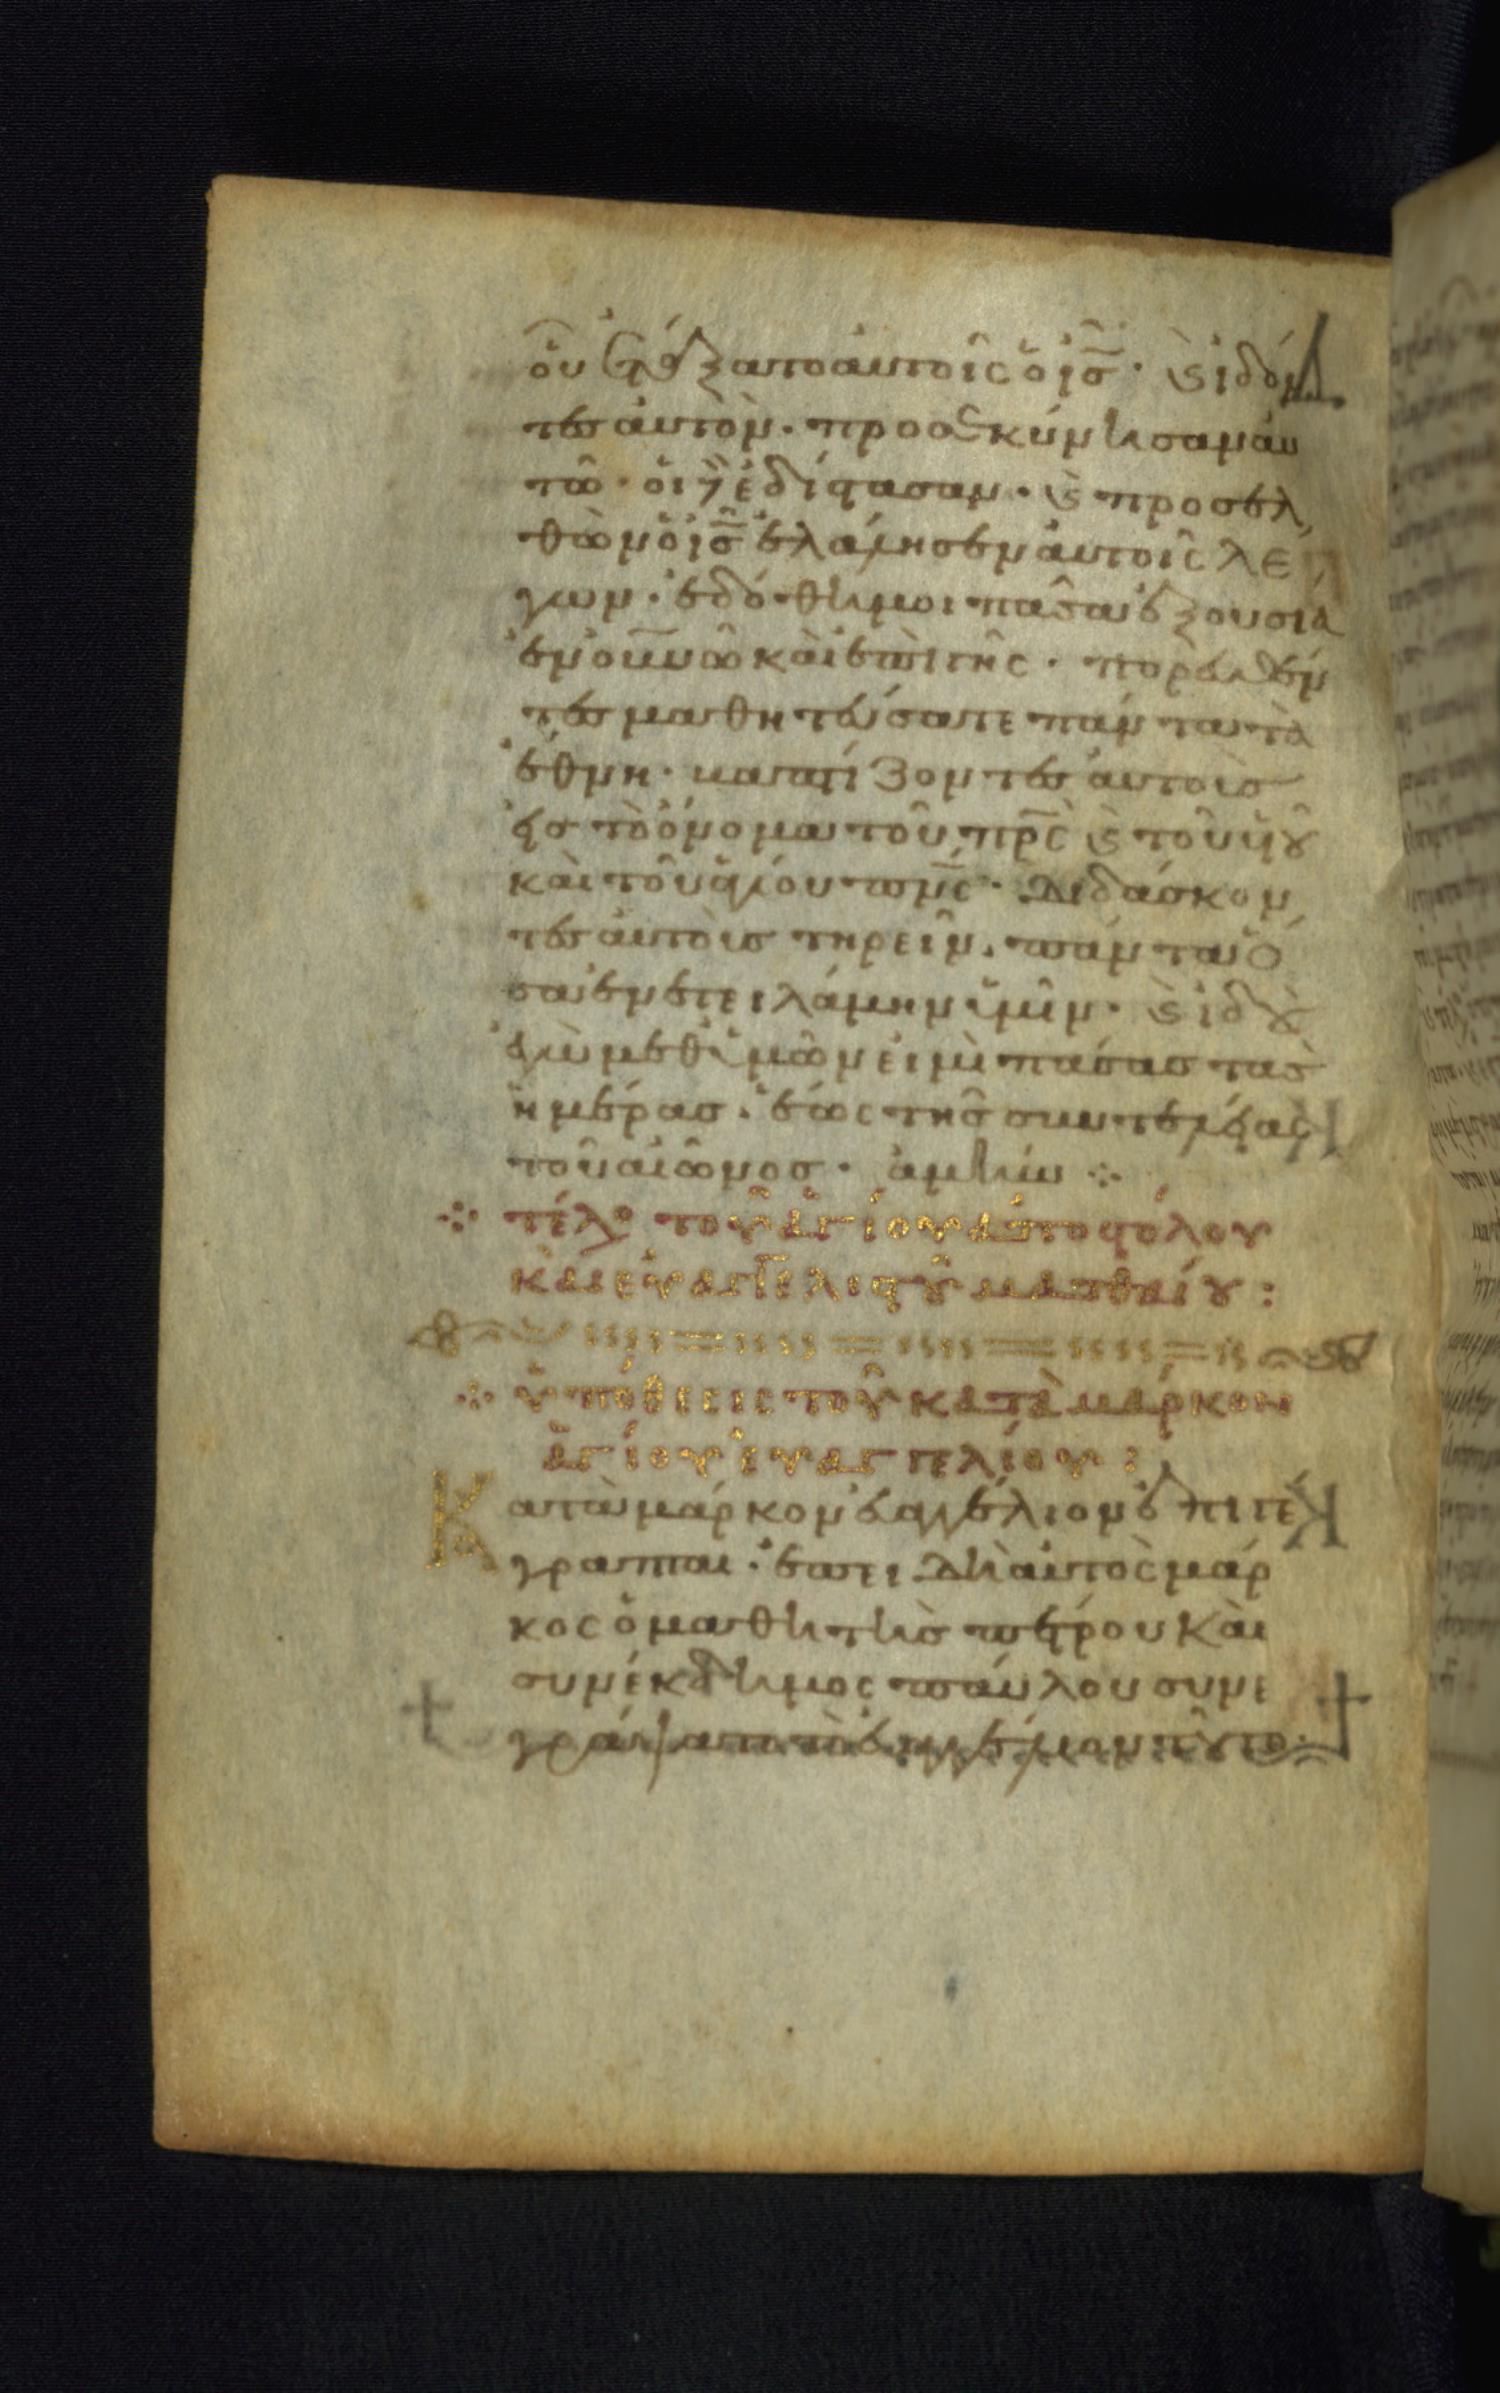 οὗ ἐτάξατο αὐτοῖς ὁ ισ̅· καὶ ἰδόν
τες αὐτὸν· προσεκύνησαν αὐ
τῶ· οἱ δὲ ἐδίστασαν· καὶ προσελ
θὼν ὁ ισ̅ ἐλάλησεν αὐτοῖς λέ
γων· ἐδόθη μοι πᾶσα ἐξουσία
ἐν ουνω̅ καὶ ἐπὶ γῆς· πορευθέν
τες μαθητεύσατε πάντα τὰ
ἔθνη· βαπτίζοντες αὐτοὺσ
εἰς τὸ ὄνομα τοῦ πρ̅ς καὶ τοῦ υἱοῦ
καὶ τοῦ ἁγίου πν̅ς· διδάσκον
τες αὐτοὺσ τηρεῖν· πάντα ὅ
σα ἐνετειλάμην ὑμῖν· καὶ ἰδοὺ
ἐγὼ μεθ ὑμῶν εἰμὶ πάσας τὰς
ἡμέρας· ἕως τῆς συντελείας
τοῦ αἰῶνος· ἀμήν
τέλος τοῦ ἁγίου ἀποστόλου
καὶ εὐαγγελιστοῦ ματθαίου:
ὑπόθεσις τοῦ κατὰ μάρκον
ἁγίου εὐαγγελίου:
Κατὰ μάρκον εὐαγγέλιον ἐπιγέ
γραπται· ἐπει δὴ αὐτὸς μάρ
κος ὁ μαθητὴσ πέτρου καὶ
συνέκδημος παύλου συνε
γράψατο τὸ εὐαγγέλιον τοῦτο·